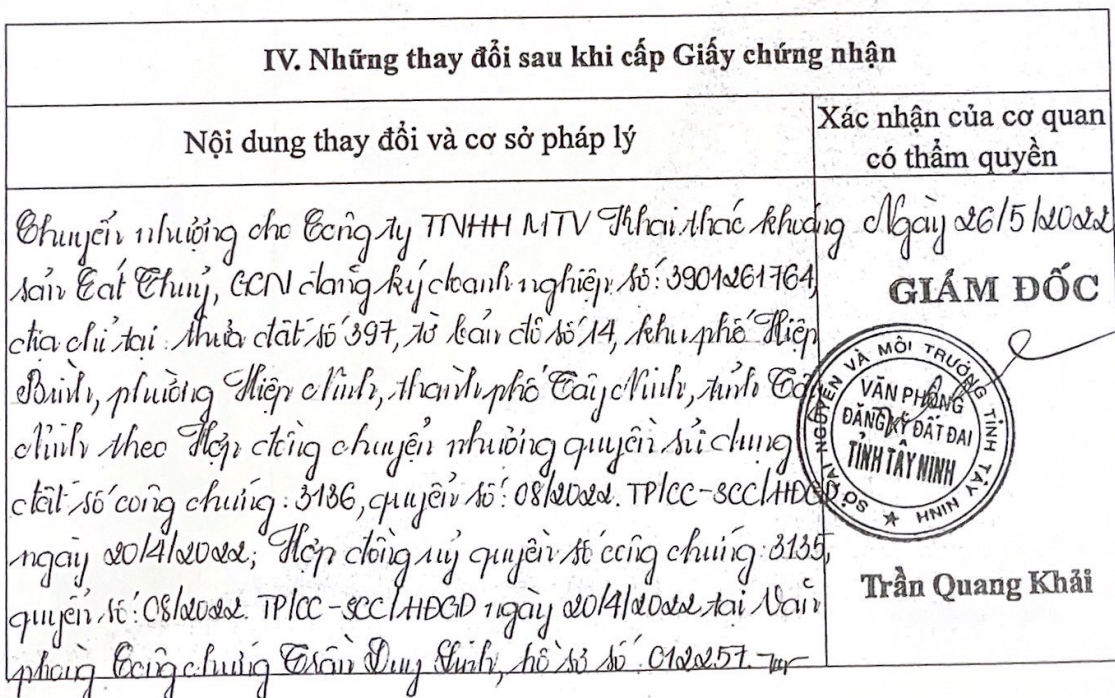 IV. Những thay đổi sau khi cấp Giấy chứng nhận
Nội dung thay đổi và cơ sở pháp lý
Xác nhận của cơ quan
có thẩm quyền
Chuyển nhượng cho Công ty TNHH MTV Khai thác khoáng
sản Cát Thuỷ, GCN đăng ký doanh nghiệp số: 3901261764,
địa chỉ tại thửa đất số 397, tờ bản đồ số 14, khu phố Hiệp
Bình, phường Hiệp Ninh, thành phố Tây Ninh, tỉnh Tây
Ninh theo Hợp đồng chuyển nhượng quyền sử dụng
đất số công chứng: 3136, quyển số: 08/2022. TP/CC-SCC/HĐGD
ngày 20/4/2022; Hợp đồng uỷ quyền số công chứng: 3135,
quyển số: 08/2022. TP/CC-SCC/HĐGD ngày 20/4/2022 tại Văn
phòng Công chứng Trần Duy Linh, hồ sơ số: 012257.
Ngày 26/5/2022
GIÁM ĐỐC
SỞ TÀI NGUYÊN VÀ MÔI TRƯỜNG TỈNH TÂY NINH
VĂN PHÒNG
ĐĂNG KÝ ĐẤT ĐAI
TỈNH TÂY NINH
Trần Quang Khải